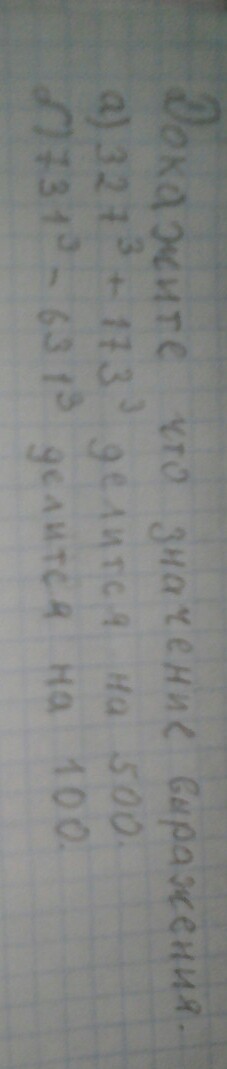 Докажите что значение выражения.
а) 327³ + 173³ делится на 500.
б) 731³ - 631³ делится на 100.